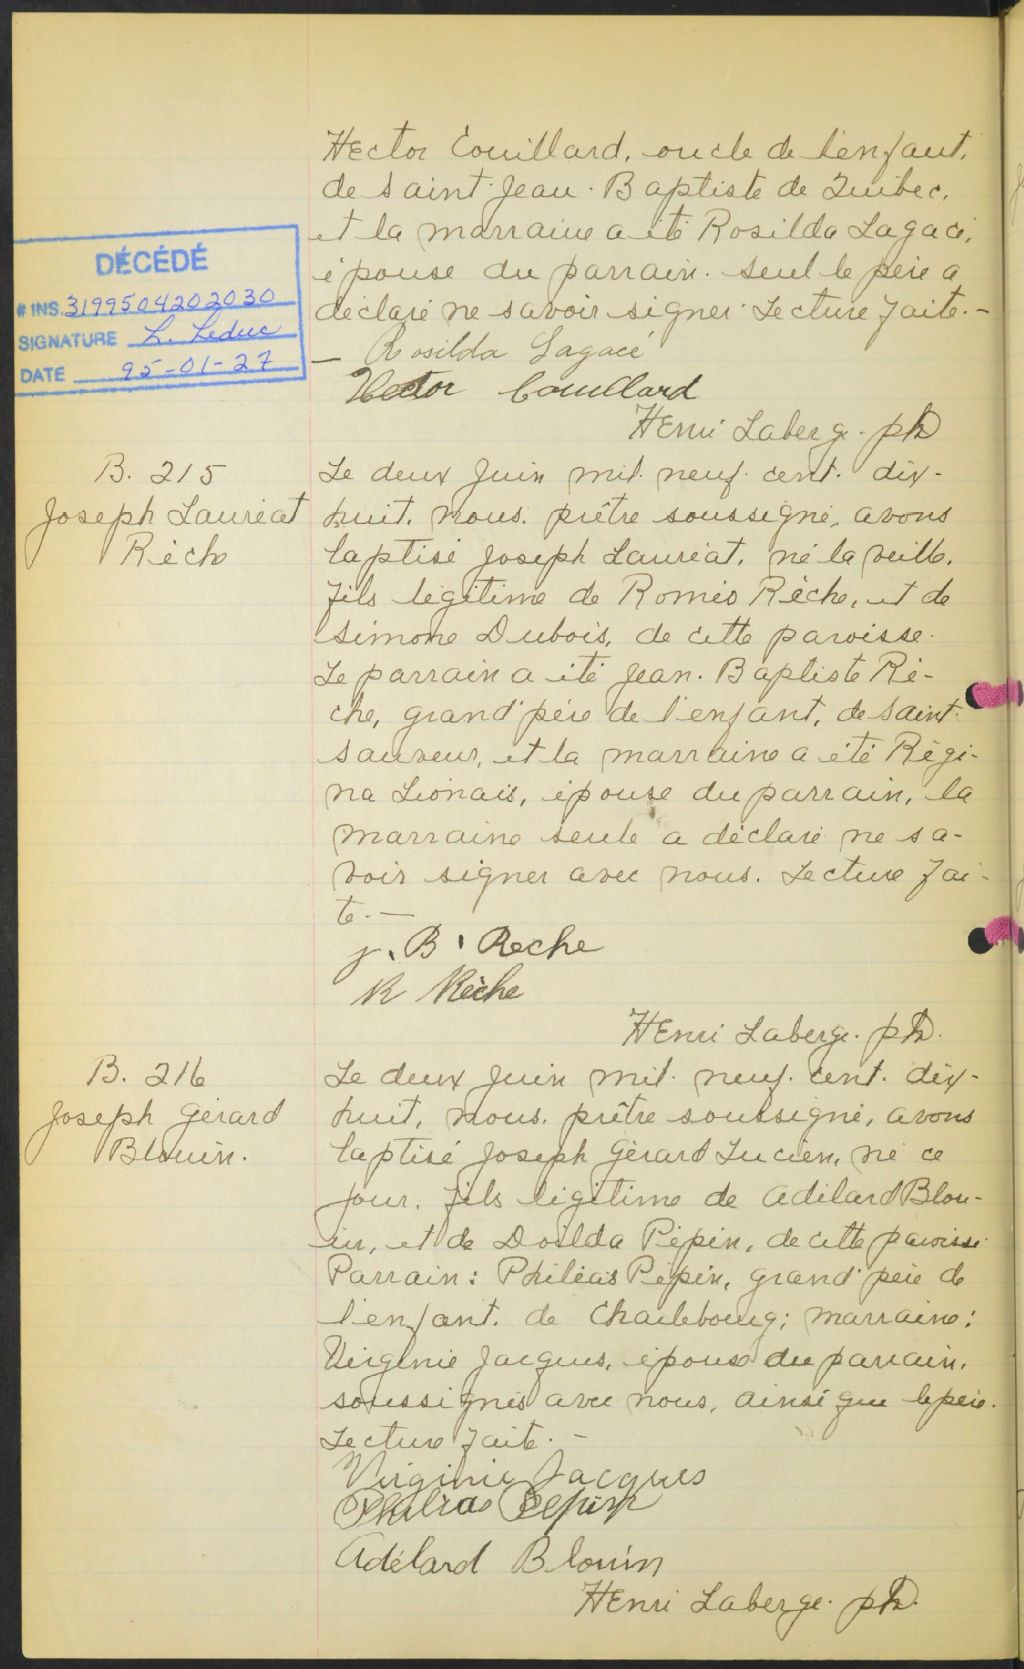 Hector Couillard, oncle de l'enfant,
de Saint-Jean-Baptiste de Québec,
et la marraine a été Rosilda Lagacé,
épouse du parrain. Seul le père a
déclaré ne savoir signer. Lecture faite. -
DÉCÉDÉ
# INS. 3199504202030
SIGNATURE L. Leduc
DATE 95-01-27
— Rosilda Lagacé
Hector Couillard
Henri Laberge. ptr
B. 215
Joseph Lauréat
Rèche
Le deux Juin mil. neuf. cent. dix-
huit, nous, prêtre soussigné, avons
baptisé Joseph Lauréat, né la veille,
fils légitime de Roméo Rèche, et de
Simone Dubois, de cette paroisse.
Le parrain a été Jean-Baptiste Rè-
che, grand'père de l'enfant, de Saint-
Sauveur, et la marraine a été Régi-
na Lionais, épouse du parrain, la
marraine seule a déclaré ne sa-
voir signer avec nous. Lecture fai-
te. —
J. B. Reche
R Rèche
Henri Laberge. ptr.
B. 216
Joseph Gérard
Blouin.
Le deux Juin mil. neuf. cent. dix-
huit, nous, prêtre soussigné, avons
baptisé Joseph Gérard Lucien, né ce
jour, fils légitime de Adélard Blou-
in, et de Doilda Pépin, de cette paroisse
Parrain: Philéas Pépin, grand'père de
l'enfant, de Charlebourg; marraine:
Virginie Jacques, épouse du parrain,
soussignés avec nous, ainsi que le père.
Lecture faite. -
Virginie Jacques
Philias Pepin
Adélard Blouin
Henri Laberge. ptr.